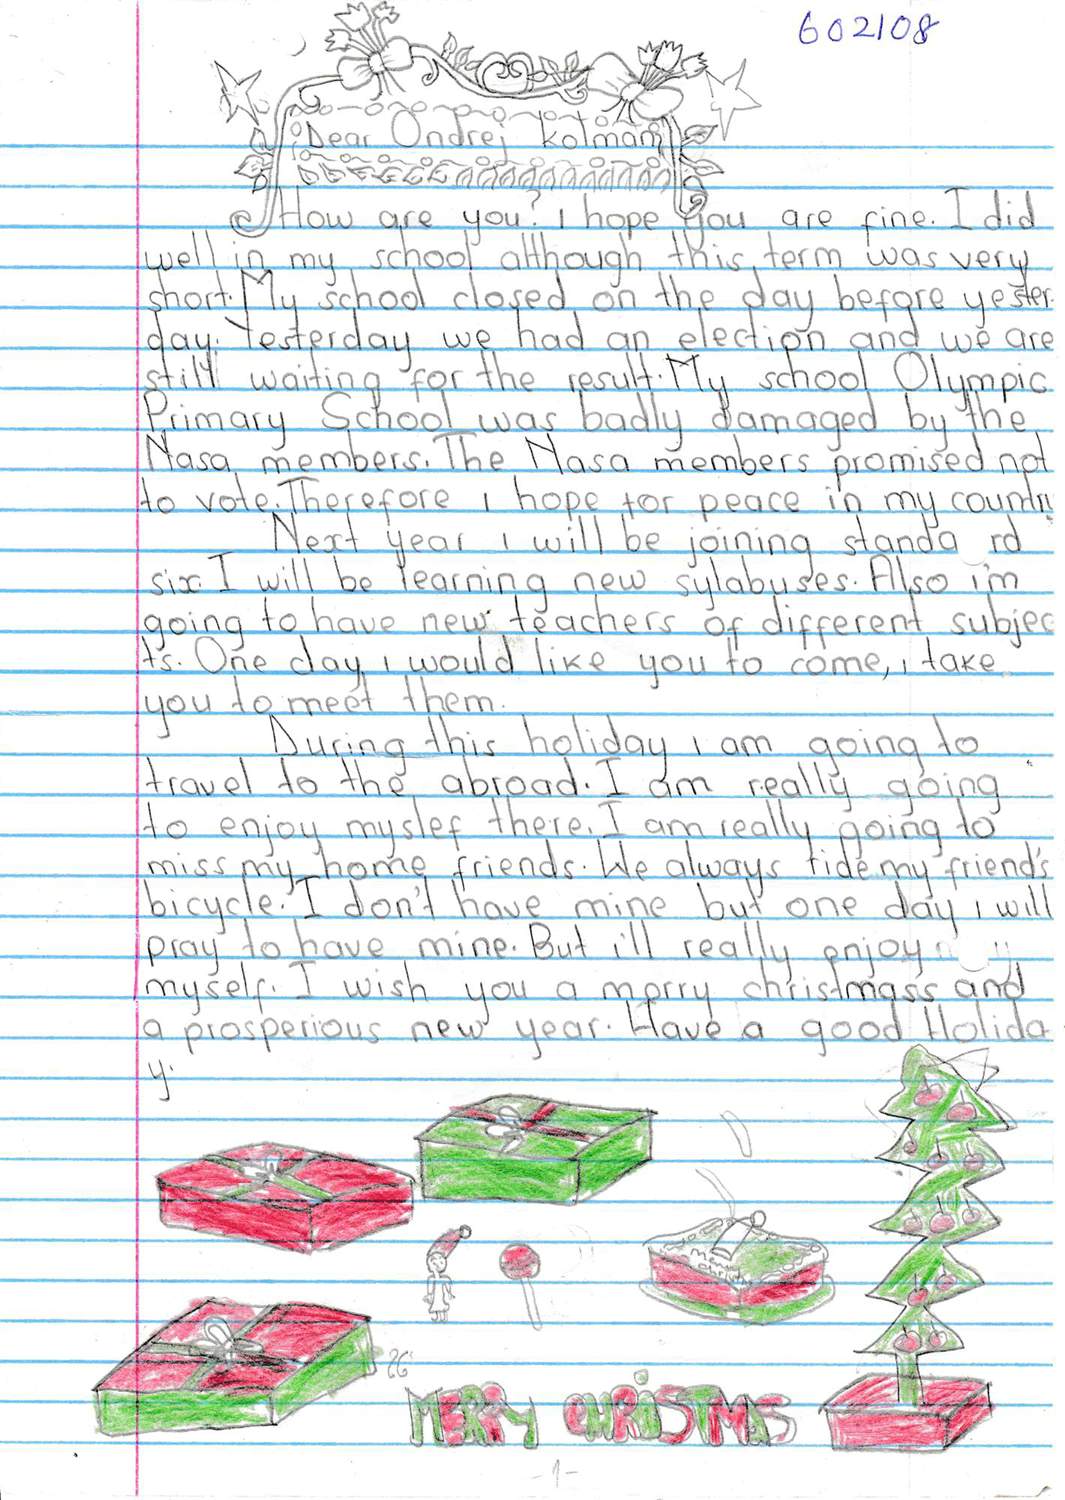 602108
Dear Ondrej Kolman
How are you? I hope you are fine. I did
well in my school although this term was very
short. My school closed on the day before yester-
day. Yesterday we had an election and we are
still waiting for the result. My school Olympic
Primary School was badly damaged by the
Nasa members. The Nasa members promised not
to vote. Therefore i hope for peace in my country
Next year i will be joining standa rd
six. I will be learning new sylabuses. Also i'm
going to have new teachers of different subjec
ts. One day i would like you to come, i take
you to meet them.
During this holiday i am going to
travel to the abroad. I am really going
to enjoy myslef there. I am really going to
miss my home friends. We always ride my friend's
bicycle. I don't have mine but one day i will
pray to have mine. But i'll really enjoy
myself. I wish you a merry christmass and
a prosperious new year. Have a good Holida
y.
Merry
christmas
MERRY CHRISTMAS
-1-